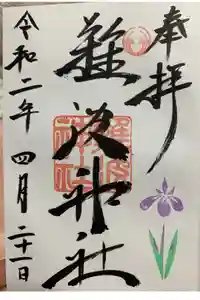 奉拝
難波神社
令和二年四月二十一日